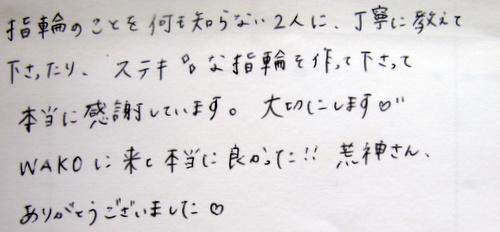 指輪のことを何も知らない2人に、丁寧に教えて
下さったり、ステキな指輪を作って下さって
本当に感謝しています。大切にします♡
WAKOに来て本当に良かった!! 荒神さん、
ありがとうございました♡